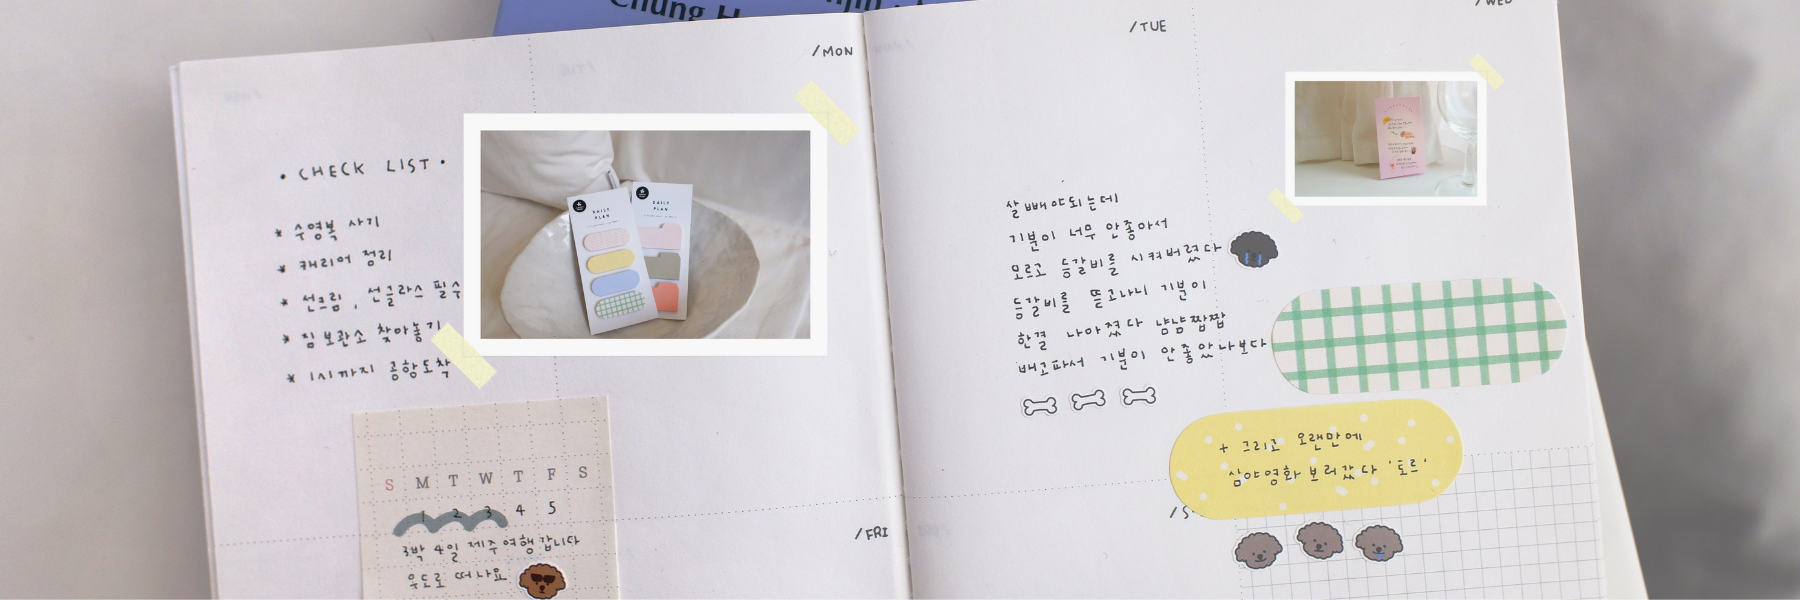 /MON
• CHECK LIST •
* 수영복 사기
* 캐리어 정리
* 선크림, 선글라스 필수
* 짐 보관소 찾아놓기
* 1시까지 공항도착
DAILY
PLAN
DAILY
PLAN
S M T W T F S
1 2 3 4 5
3박 4일 제주여행 갑니다
우도로 떠나요
/FRI
/TUE
/WED
살 빼야되는데
기분이 너무 안좋아서
모르고 등갈비를 시켜버렸다
등갈비를 뜯고나니 기분이
한결 나아졌다 냠냠쩝쩝
배고파서 기분이 안좋았나보다
+ 그리고 오랜만에
심야영화 보러갔다 '토르'